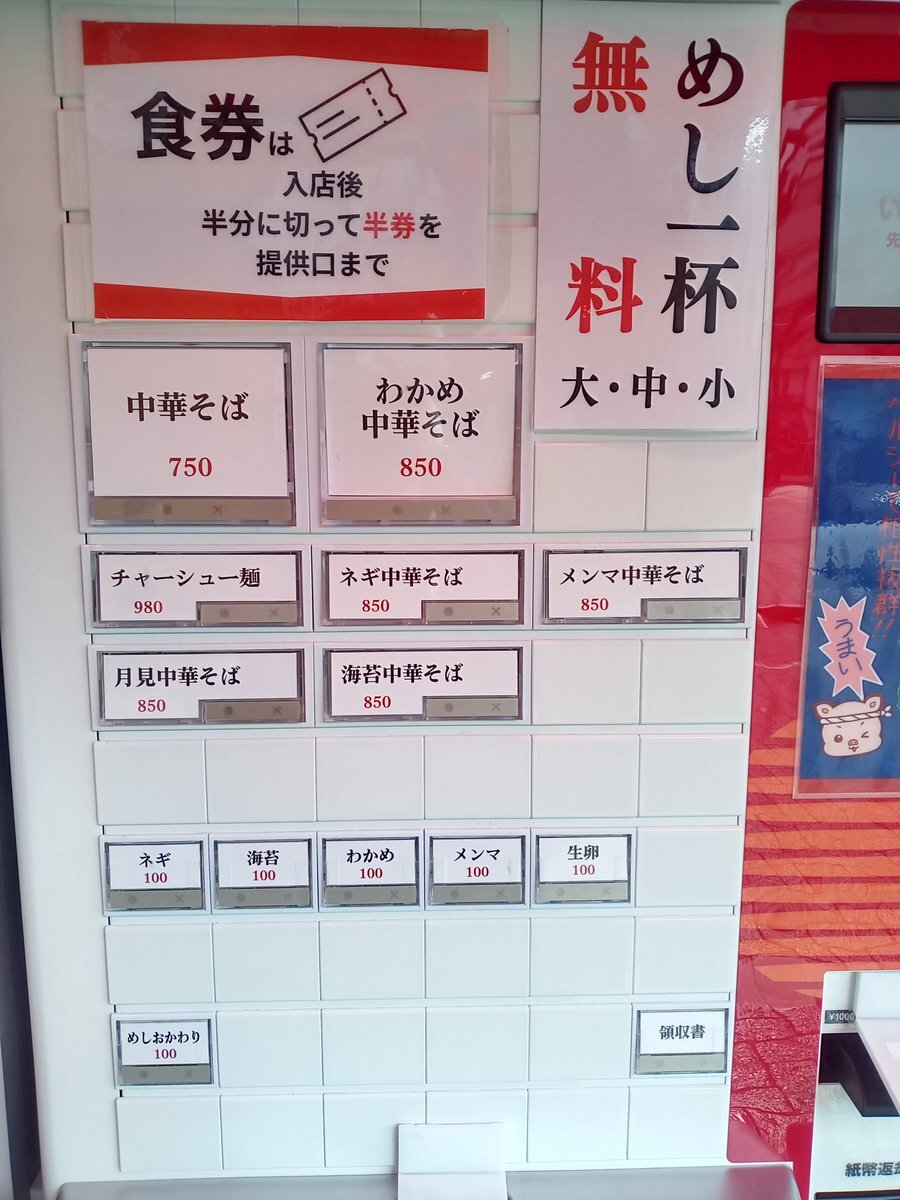 食券は
入店後
半分に切って半券を
提供口まで
めし一杯
無料
大・中・小
中華そば
750
わかめ
中華そば
850
チャーシュー麺
980
ネギ中華そば
850
メンマ中華そば
850
月見中華そば
850
海苔中華そば
850
ネギ
100
海苔
100
わかめ
100
メンマ
100
生卵
100
めしおかわり
100
領収書
い
先
相性抜群!!
うまい
¥1000
紙幣返却